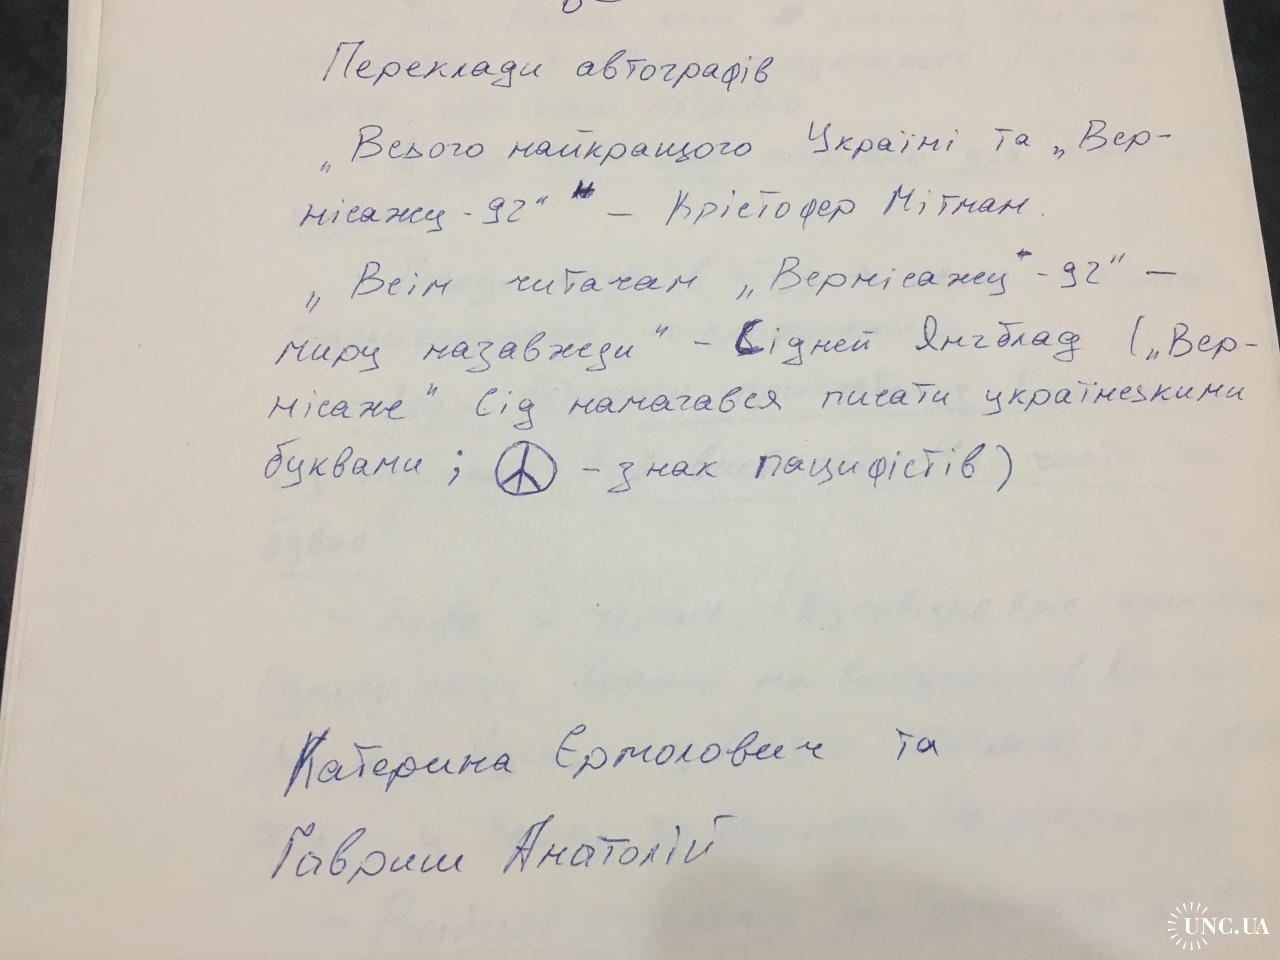 Переклади автографів
„Всього найкращого Україні та „Вер-
нісажу - 92“ “ – Крістофер Мітман.
„Всім читачам „Вернісажу - 92“ –
миру назавжди“ – Сідней Янгблад („Вер-
нісаж“ Сід намагався писати українськими
буквами; ☮ – знак пацифістів)
Катерина Єрмолович та
Гавриш Анатолій
UNC.UA